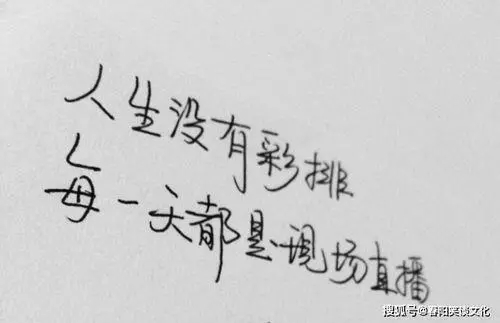 人生没有彩排
每一天都是现场直播
搜狐号@春阳笑谈文化